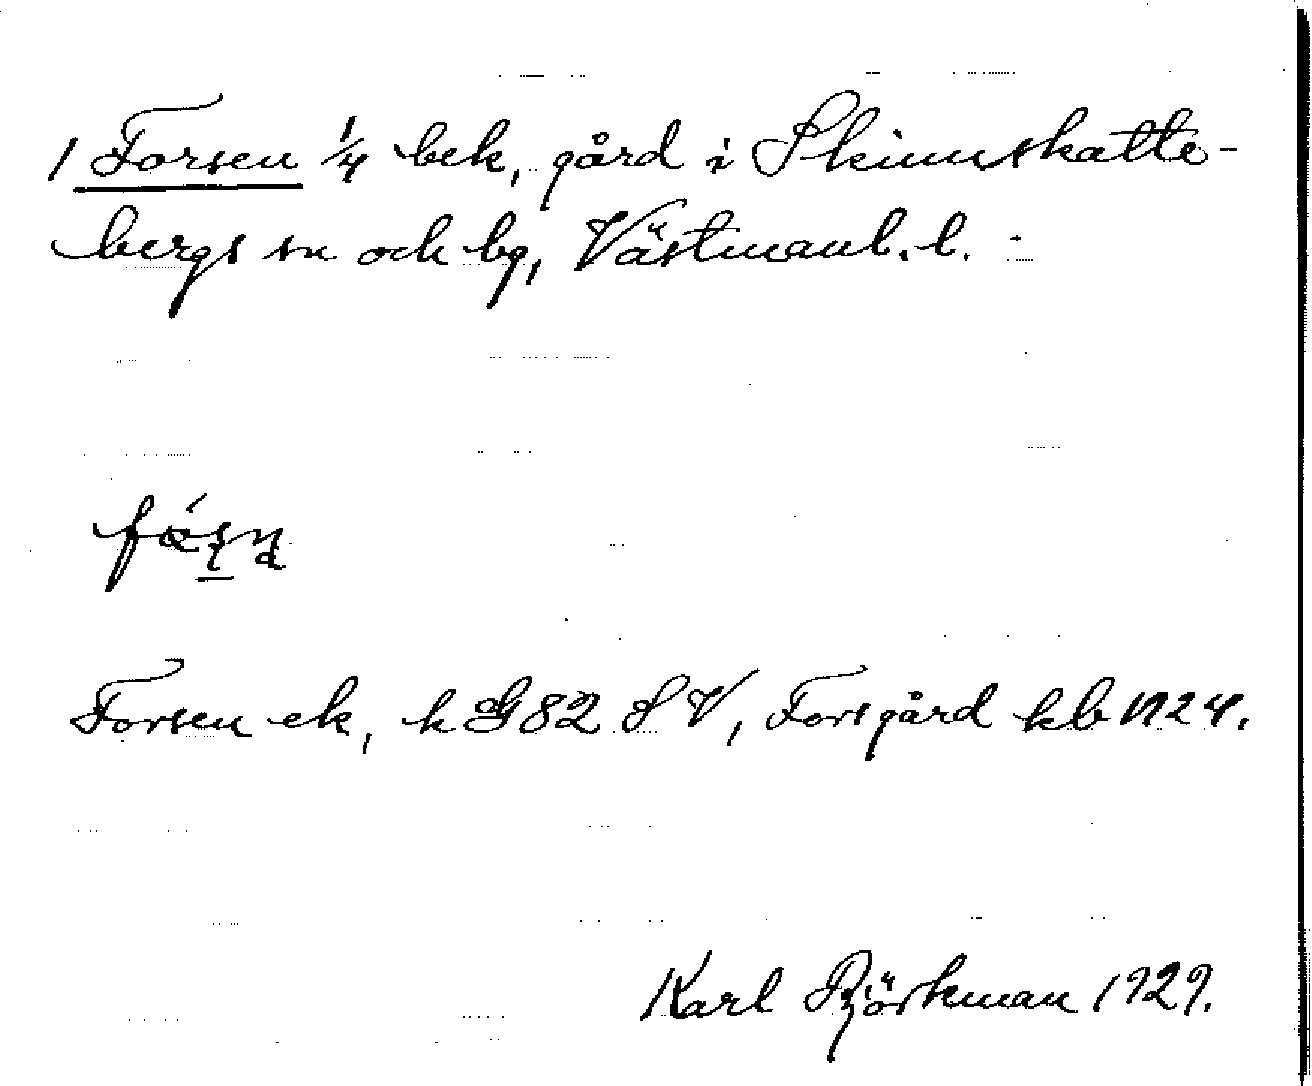 1 Forsen 1/4 bek, gård i Skinnskatte-
bergs sn och bg, Västmanl. l. -
Forsen ek, k G 82 S V, Forsgård kb 1724.
Karl Björkman 1929.